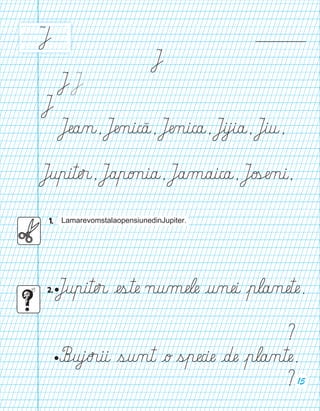 J
J
J J
J
Jean, Jenică, Jenica, Jijia, Jiu,
Jupiter, Japonia, Jamaica, Joseni,
1. LamarevomstalaopensiunedinJupiter.
2. • Jupiter este numele unei planete.
?
• Bujorii sunt o specie de plante.
? 15